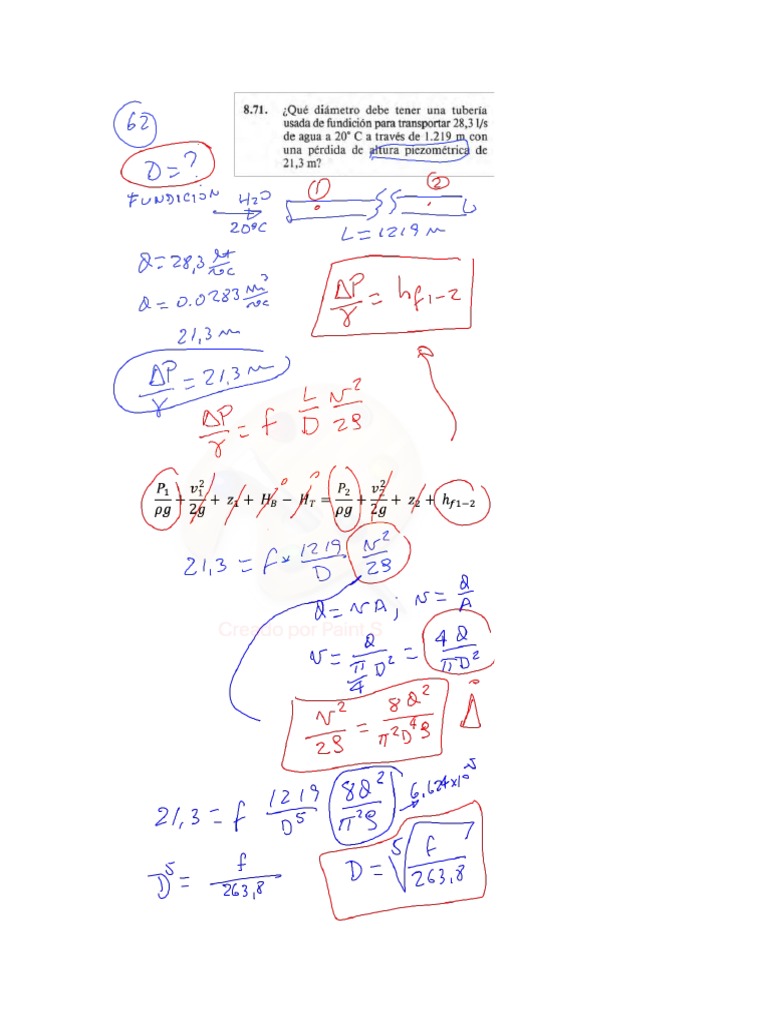 62
8.71. ¿Qué diámetro debe tener una tubería
usada de fundición para transportar 28,3 l/s
de agua a 20° C a través de 1.219 m con
una pérdida de altura piezométrica de
21,3 m?
D=?
FUNDICIÓN H2O
20°C
① ②
L=1219 m
Q=28,3 lt/sec
Q=0.0283 m³/sec
21,3 m
ΔP/γ = 21,3 m
ΔP/γ = hf1-2
ΔP/γ = f L/D v²/2g
P₁/ρg + v₁²/2g + z₁ + H_B − H_T = P₂/ρg + v₂²/2g + z₂ + h_f1−2
21,3 = f* 1219/D v²/2g
Q=vA; v=Q/A
Creado por Paint S
v= Q/(π/4 D²) = 4Q/πD²
v²/2g = 8Q²/π²D⁴g
21,3 = f 1219/D⁵ 8Q²/π²g 6,624x10⁻⁵
D⁵ = f/263,8
D = ⁵√(f/263,8)